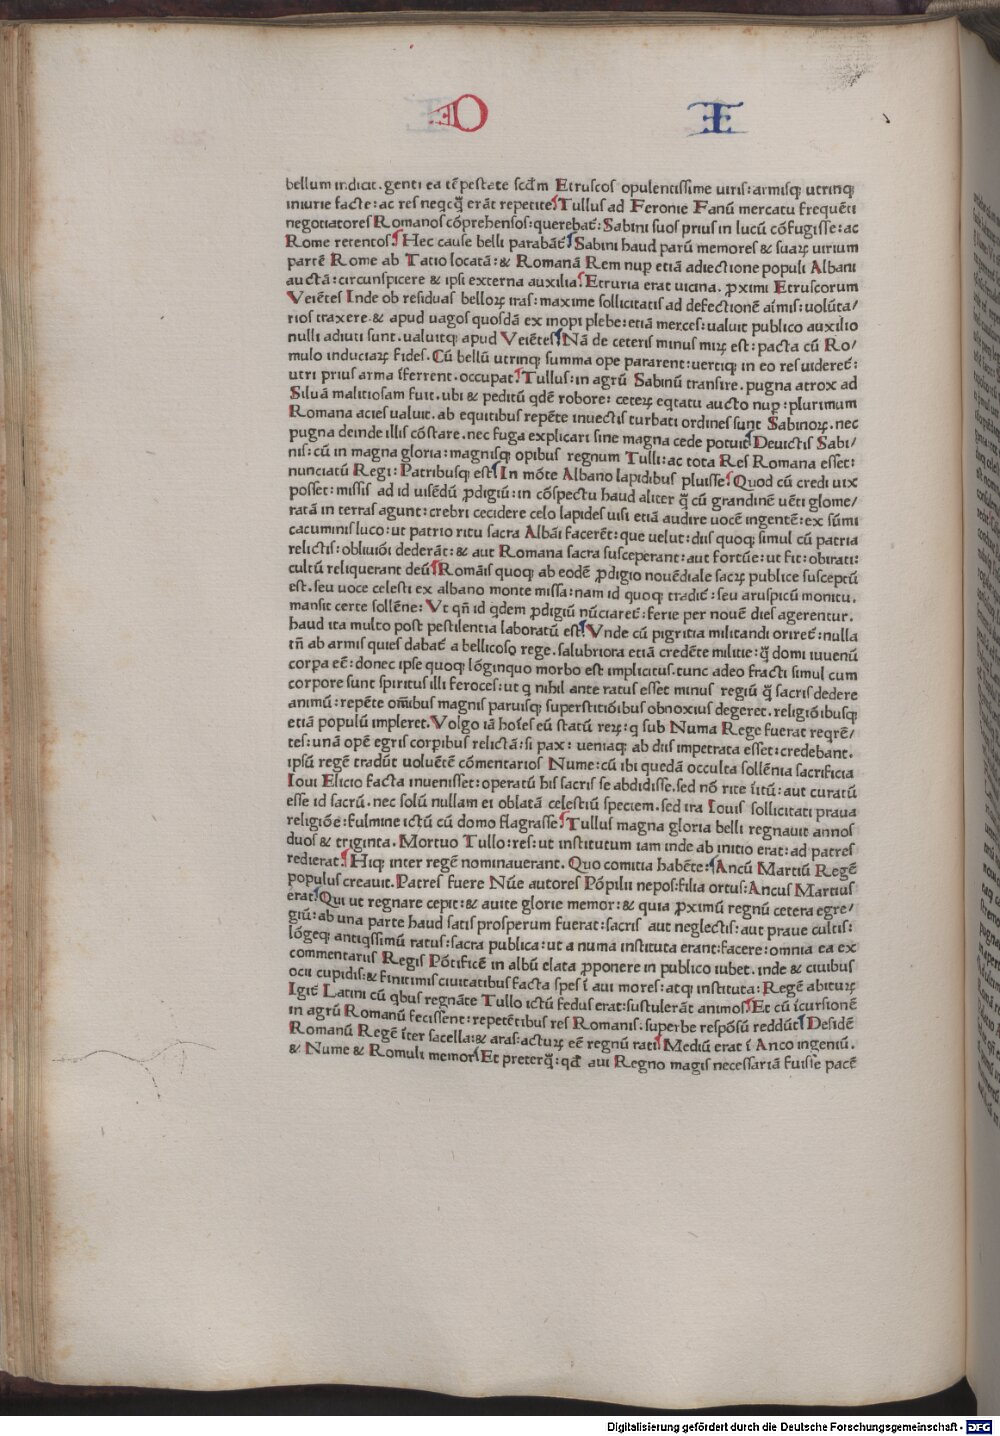 bellum indicit. genti ea tēpestate scdm Etruscos opulentissime uiris: armisq; utrinq;
iniurie facte: ac res neqcq̄ erāt repetite Tullus ad Feronie Fanū mercatu frequēti
negotiatores Romanos cōprehensos: querebat᷑: Sabini suos prius in lucū cōfugisse: ac
Rome retentos Hec cause belli parabāt᷑ Sabini haud parū memores & suaꝝ uirium
partē Rome ab Tatio locatā: & Romanā Rem nup etiā adiectione populi Albani
auctā: circunspicere & ipsi externa auxilia Etruria erat uicina. ꝓximi Etruscorum
Veiētes Inde ob residuas belloꝝ iras: maxime sollicitatis ad defectionē aīmis: uolūta/
rios traxere. & apud uagos quosdā ex inopi plebe: etiā merces: ualuit publico auxilio
nulli adiuti sunt. ualuitq; apud Veiētes Nā de ceteris minus miꝝ est: pacta cū Ro/
mulo induciaꝝ fides. Cū bellū utrinq; summa ope pararent: uertiq; in eo res uideret᷑:
utri prius arma īferrent. occupat Tullus: in agrū Sabinū transire. pugna atrox ad
Siluā malitiosam fuit. ubi & peditū qdē robore: ceteꝝ eqtatu aucto nup: plurimum
Romana acies ualuit. ab equitibus repēte inuectis turbati ordines sunt Sabinoꝝ. nec
pugna deinde illis cōstare. nec fuga explicari sine magna cede potuit Deuictis Sabi/
nis: cū in magna gloria: magnisq; opibus regnum Tulli: ac tota Res Romana esset:
nunciatū Regi: Patribusq; est In mōte Albano lapidibus pluisse Quod cū credi uix
posset: missis ad id uisēdū ꝓdigiū: in cōspectu haud aliter q̄ cū grandinē uēti glome/
ratā in terras agunt: crebri cecidere celo lapides uisi etiā audire uocē ingentē: ex sūmi
cacuminis luco: ut patrio ritu sacra Albāi facerēt: que uelut: diis quoq; simul cū patria
relictis: obliuiōi dederāt: & aut Romana sacra susceperant: aut fortūe: ut fit: obirati:
cultū reliquerant deū Romāis quoq; ab eodē ꝓdigio nouēdiale sacꝝ publice susceptū
est. seu uoce celesti ex albano monte missa: nam id quoq; tradit᷑: seu aruspicū monitu.
mansit certe sollēne: Vt qn̄ id qdem ꝓdigiū nūciaret᷑: ferie per nouē dies agerentur.
haud ita multo post pestilentia laboratū est Vnde cū pigritia militandi oriret᷑: nulla
tn̄ ab armis quies dabat᷑ a bellicoso rege. salubriora etiā credēte militie: q̄ domi iuuenū
corpa eē: donec ipse quoq; lōginquo morbo est implicitus. tunc adeo fracti simul cum
corpore sunt spiritus illi feroces: ut q nihil ante ratus esset minus regiū q̄ sacris dedere
animū: repēte om̄ibus magnis paruisq; superstitiōibus obnoxius degeret. religiōibusq;
etiā populū impleret. Volgo iā hoīes eū statū reꝝ: q sub Numa Rege fuerat reqrē/
tes: unā opē egris corpibus relictā: si pax: ueniaq; ab diis impetrata esset: credebant.
ipsū regē tradūt uoluētē cōmentarios Nume: cū ibi quedā occulta sollēnia sacrificia
Ioui Elicio facta inuenisset: operatū his sacris se abdidisse. sed nō rite īitū: aut curatū
esse id sacrū. nec solū nullam ei oblatā celestiū speciem. sed ira Iouis sollicitati praua
religiōe: fulmine ictū cū domo flagrasse Tullus magna gloria belli regnauit annos
duos & triginta. Mortuo Tullo: res: ut institutum iam inde ab initio erat: ad patres
redierat Hiq; inter regē nominauerant. Quo comitia habēte: Ancū Martiū Regē
populus creauit. Patres fuere Nūe autores Pōpilii nepos: filia ortus: Ancus Martius
erat Qui ut regnare cepit: & auite glorie memor: & quia ꝓximū regnū cetera egre/
giū: ab una parte haud satis prosperum fuerat: sacris aut neglectis: aut praue cultis:
lōgeq; antiqssimū ratus: sacra publica: ut a numa instituta erant: facere: omnia ea ex
commentariis Regis Pōtificē in albū elata ꝓponere in publico iubet. inde & ciuibus
ocii cupidis: & finitimis ciuitatibus facta spes ī aui mores: atq; instituta: Regē abituꝝ
Igit᷑ Latini cū qbus regnāte Tullo ictū fedus erat: sustulerāt animos Et cū īcursionē
in agrū Romanū fecissent: repetētibus res Romanis. superbe respōsū reddūt Desidē
Romanū Regē īter sacella: & aras: actuꝝ eē regnū rati Mediū erat ī Anco ingeniū.
& Nume & Romuli memor Et preterq̄: qd aui Regno magis necessariā fuisse pacē
Digitalisierung gefördert durch die Deutsche Forschungsgemeinschaft - DFG